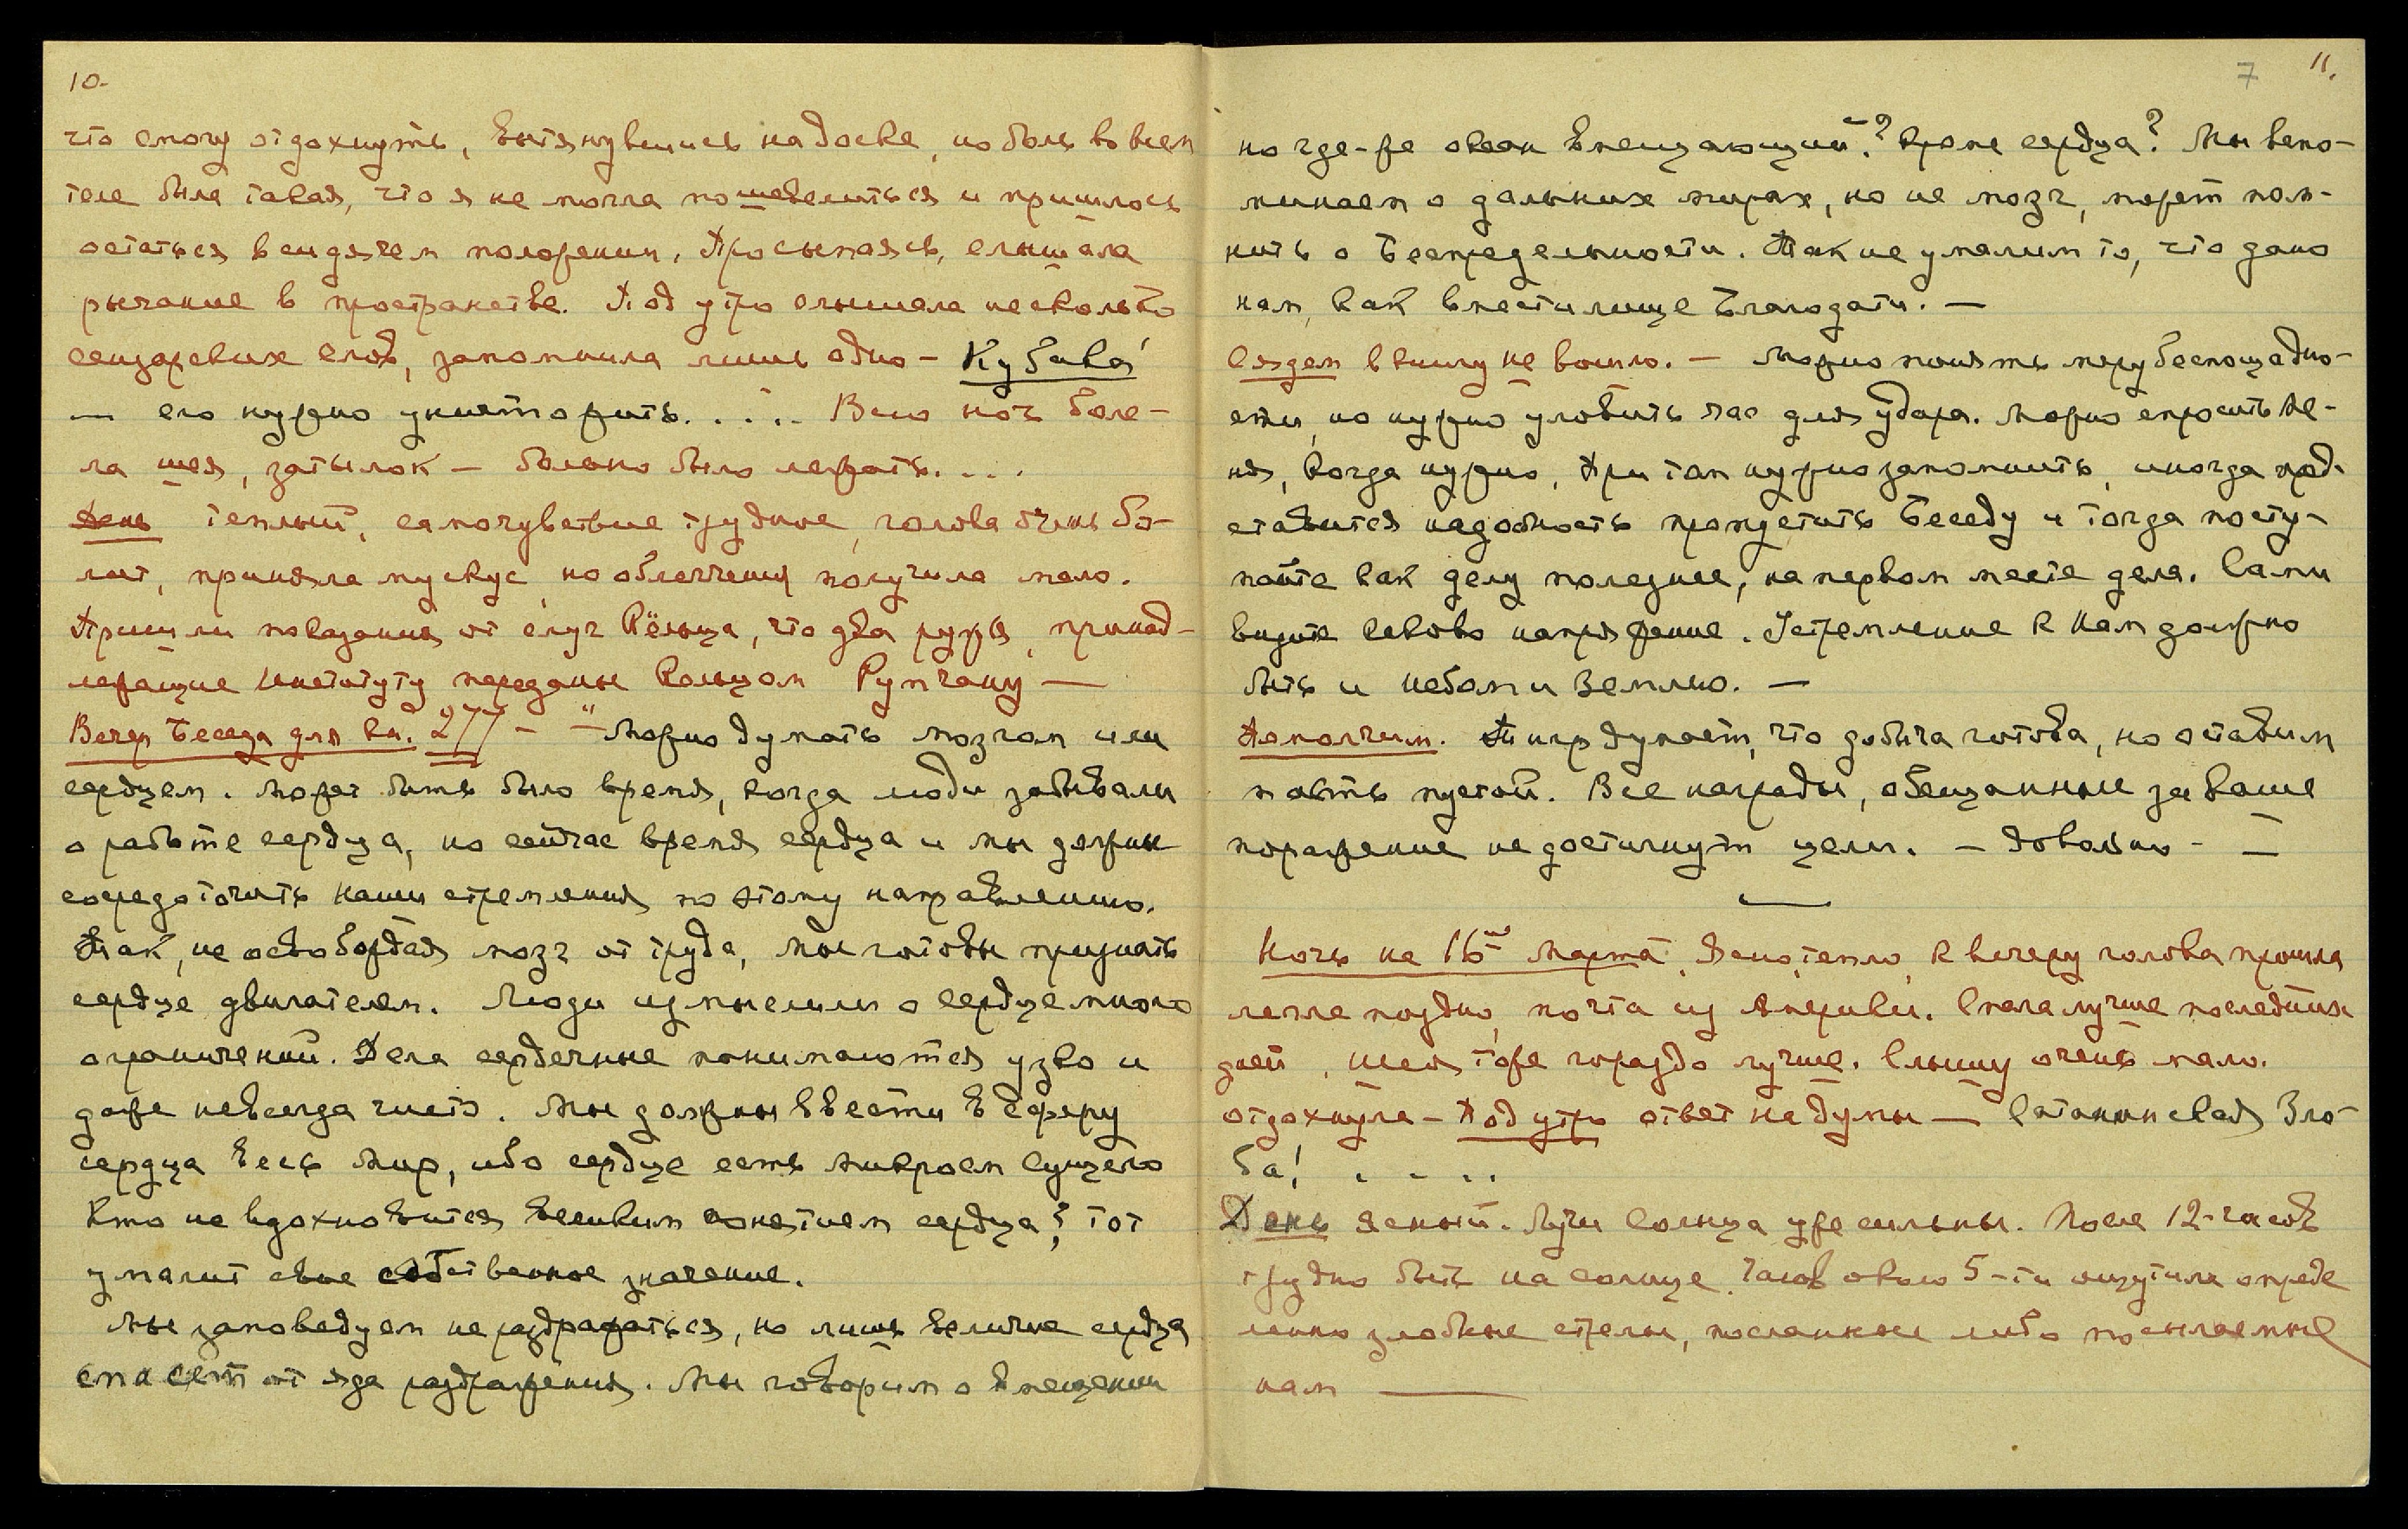 10.
что смогу отдохнуть, вытянувшись на доске, но боль во всем
теле была такая, что я не могла пошевелиться и пришлось
остаться в сидячем положении. Просыпаясь, слышала
рычание в пространстве. Под утро слышала несколько
сензарских слов, запомнила лишь одно – Кубака́
— его нужно уничтожить. . . . . Всю ночь боле-
ла шея, затылок – больно было лежать. . . .
День теплый, самочувствие трудное, голова очень бо-
лит, приняла мускус, но облегчения получила мало.
Пришли показания от слуг Кёльца, что два ружья, принад-
лежащие Институту переданы Кольцом Румчану —
Вечер Беседа для кн. 277 – "– Можно думать мозгом или
сердцем. Может быть было время, когда люди забывали
о работе сердца, но сейчас время сердца и мы должны
сосредоточить наши стремления по этому направлению.
Так, не освобождая мозг от труда, мы готовы признать
сердце двигателем. Люди измыслили о сердце много
ограничений. Дела сердечные понимаются узко и
даже невсегда чисто. Мы должны ввести в сферу
сердца весь Мир, ибо сердце есть микросм Сущего
Кто не вдохновится великим понятием сердца, тот
умалит свое собственное значение.
Мы заповедуем не раздражаться, но лишь величие сердца
спасет от яда раздражения. Мы говорим о вмещении
7 11.
но где-же океан вмещающий? кроме сердца? Мы вспо-
минаем о дальних мирах, но не мозг, может пом-
нить о Беспредельности. Так не умалим то, что дано
нам, как вместилище Благодати. —
Сяздем в книгу не вошло. – Можно понять меру беспощадно-
сти, но нужно уловить час для удара. Можно спросить Ме-
ня, когда нужно, При том нужно запомнить, иногда пред-
ставится надобность пропустить Беседу и тогда посту-
пайте как делу полезнее, на первом месте дела. Сами
видите каково напряжение. Устремление к Нам должно
быть и Небом и Землею. —
Помолчим. Тигр думает, что добыча готова, но оставим
пасть пустой. Все награды, обещанные за ваше
поражение не достигнут цели. – Довольно – —
Ночь на 16ое Марта. Ясно, тепло, к вечеру голова прошла
легла поздно, почта из Америки. Спала лучше последних
дней, шея тоже гораздо лучше. Слышу очень мало.
отдохнула – Под утро ответ на думы — Сатанинская Зло-
ба! . . . .
День ясный. Лучи Солнца уже сильны. После 12-часов
трудно быть на солнце. Часов около 5-ти ощутила опреде
ленно злобные стрелы, посланные либо посылаемые
нам —